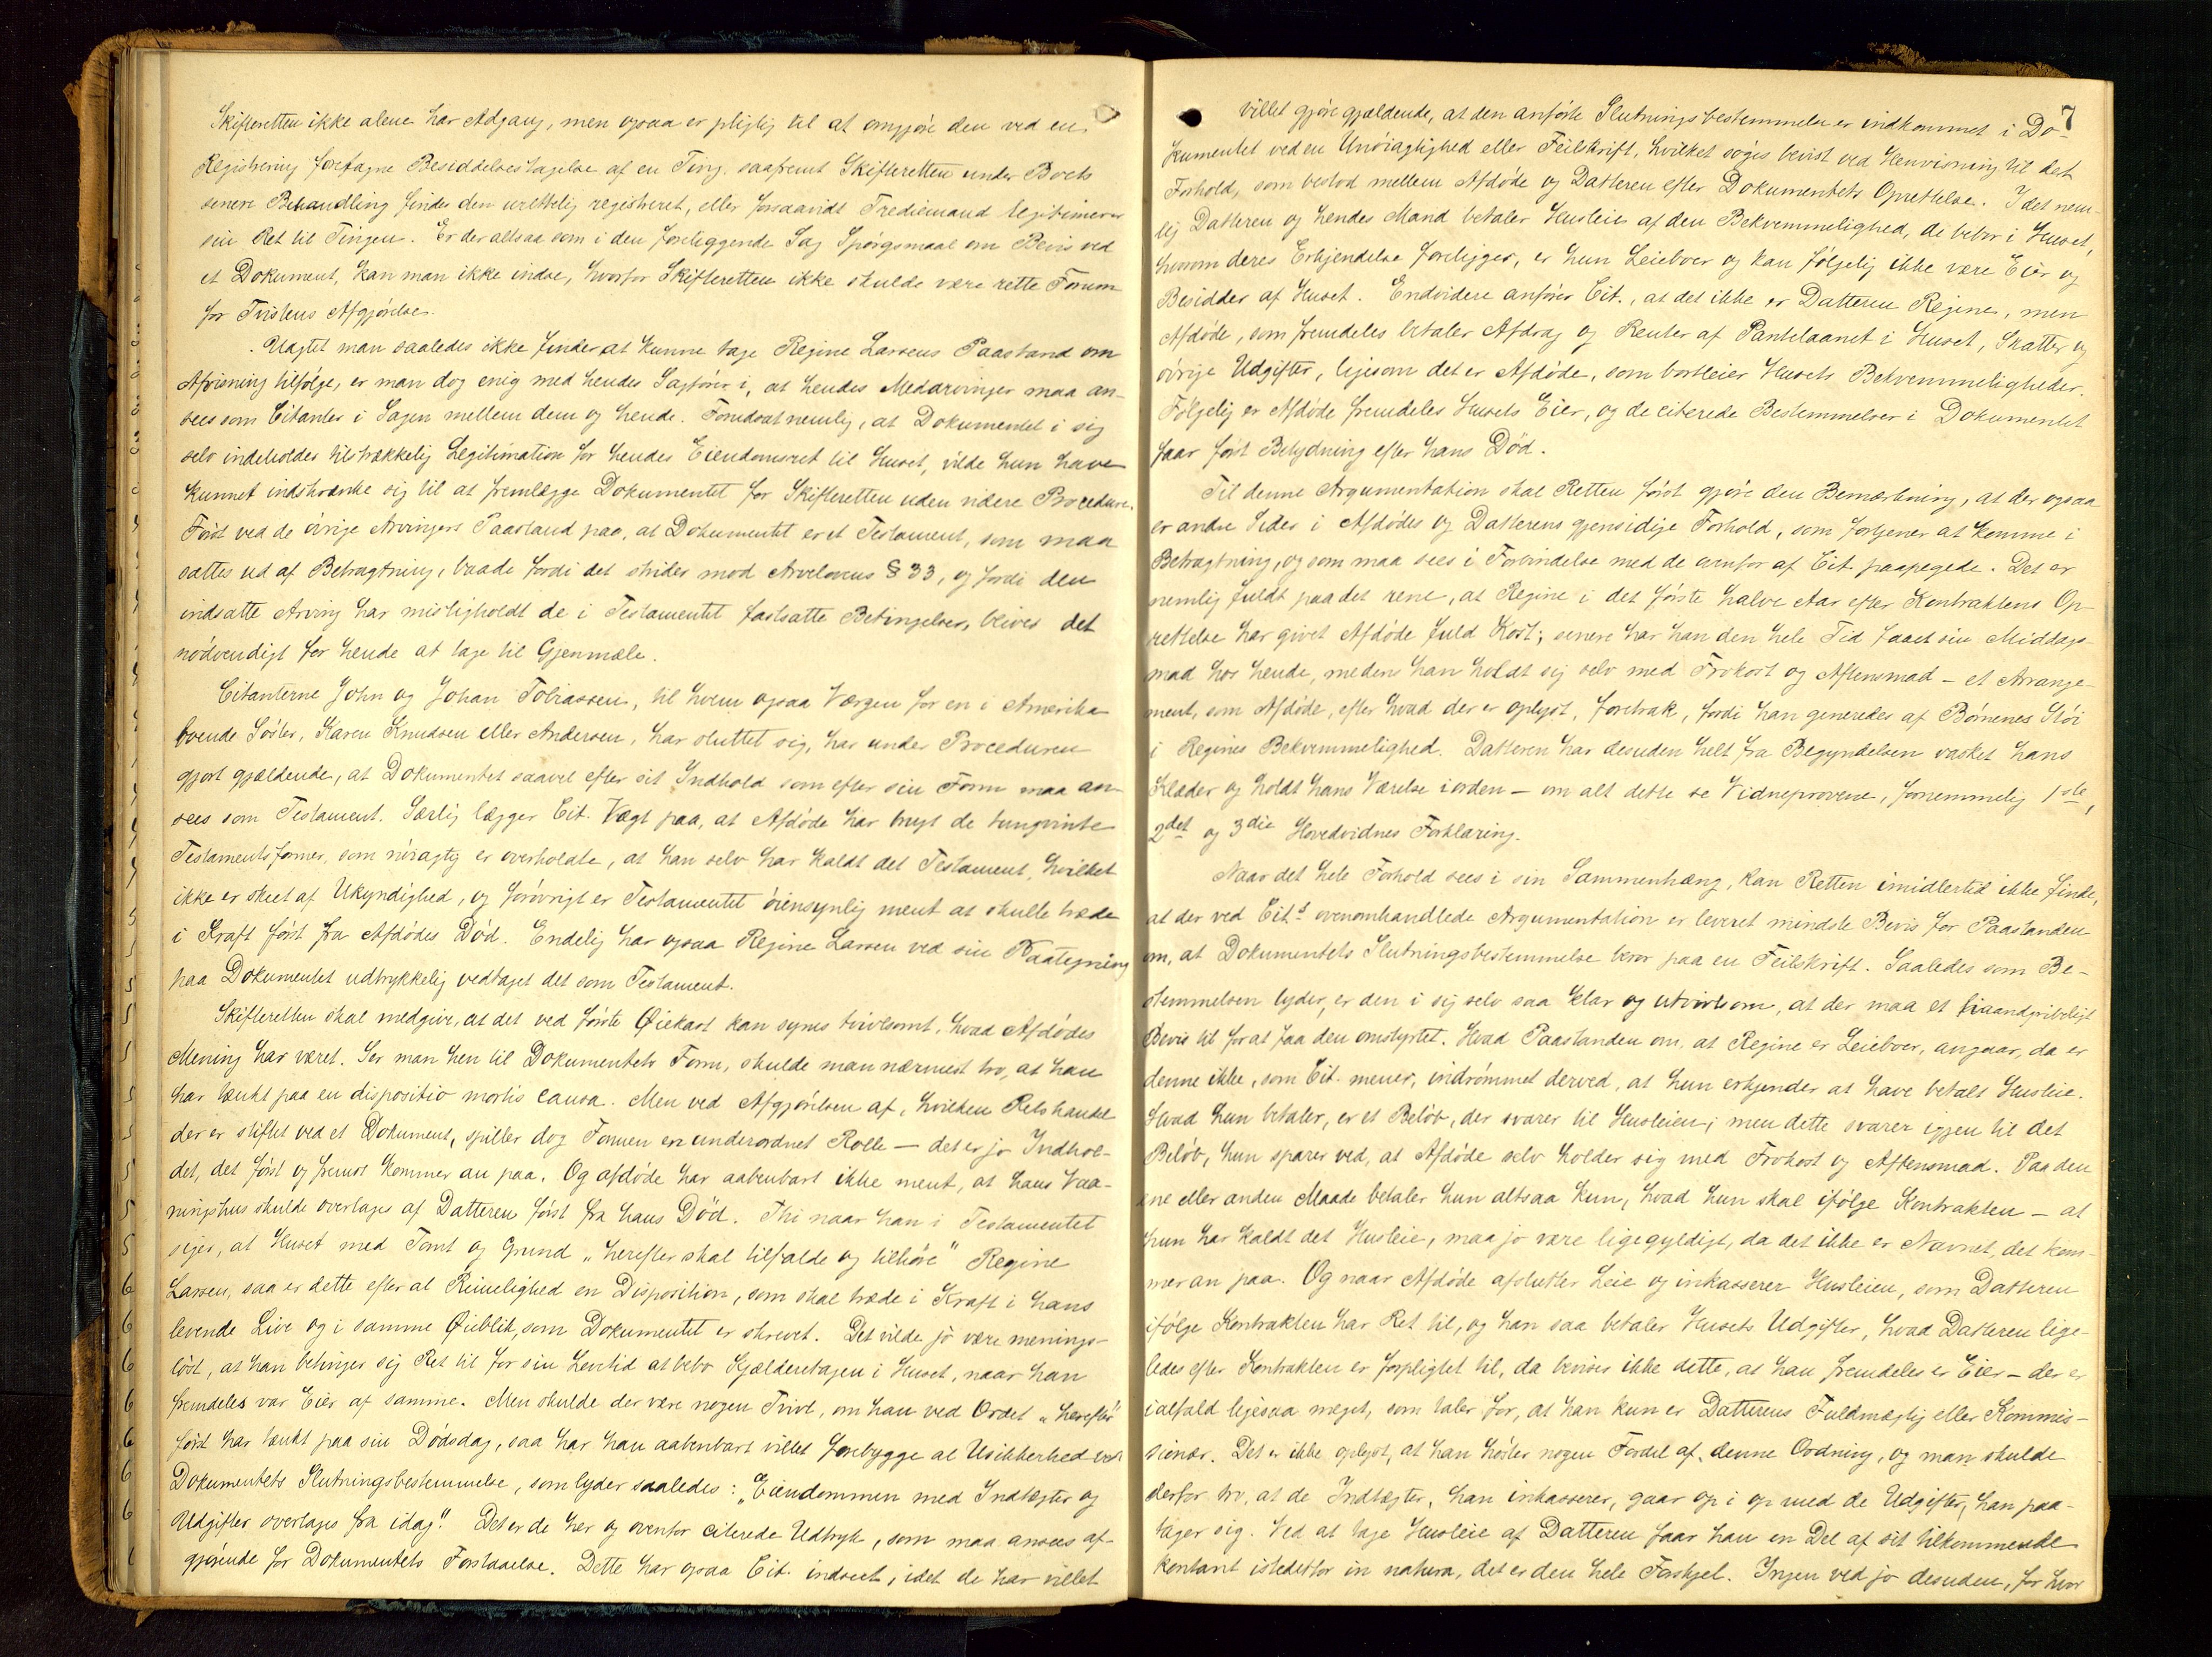 Skifteretten ikke alene har Adgang, men ogsaa er pligtig til at omgjøre den ved en
Registrering foretagne Besiddelsestagelse af en Ting, saafremt Skifteretten under Boets
senere Behandling finder den urettelig registreret, eller forsaavidt Trediemand legitimerer
sin Ret til Tingen. Er der altsaa som i den foreliggende Sag Spørgsmaal om Bevis ved
et Dokument, kan man ikke indse, hvorfor Skifteretten ikke skulde være rette Forum
for Tvistens Afgjørelse.
Uagtet man saaledes ikke finder at kunne tage Regine Larsens Paastand om
Afvisning tilfølge, er man dog enig med hendes Sagfører i, at hendes Medarvinger maa an-
sees som Citanter i Sagen mellem dem og hende. Forudsat nemlig, at Dokumentet i sig
selv indeholder tilstrækkelig Legitimation for hendes Eiendomsret til Huset, vilde hun have
kunnet indskrænke sig til at fremlægge Dokumentet for Skifteretten uden videre Procedure.
Først ved de øvrige Arvingers Paastand paa, at Dokumentet er et Testament, som maa
sættes ud af Betragtning, baade fordi det strider mod Arvelovens § 33, og fordi den
indsatte Arving har misligholdt de i Testamentet fastsatte Betingelser, blives det
nødvendigt for hende at tage til Gjenmæle.
Citanterne John og Johan Tobiassen, til hvem ogsaa Værgen for en i Amerika
boende Søster, Karen Knudsen eller Andersen, har sluttet sig, har under Proceduren
gjort gjældende, at Dokumentet saavel efter sit Indhold som efter sin Form maa an-
sees som Testament. Særlig lægger Cit. Vægt paa, at Afdøde har brugt de tungvinte
Testamentsformer, som nøiagtig er overholdte, at han selv har kaldt det Testament, hvilket
ikke er skeet af Ukyndighed, og forøvrigt er Testamentet øiensynlig ment at skulle træde
i Kraft først fra Afdødes Død. Endelig har ogsaa Regine Larsen ved sin Paategning
paa Dokumentet udtrykkelig vedtaget det som Testament.
Skifteretten skal medgive, at det ved første Øiekast kan synes tvivlsomt, hvad Afdødes
Mening har været. Ser man hen til Dokumentets Form, skulde man nærmest tro, at han
har tænkt paa en dispositio mortis causa. Men ved Afgjørelsen af, hvilken Retshandel
der er stiftet ved et Dokument, spiller dog Formen en underordnet Rolle – det er jo Indhol-
det, det først og fremst kommer an paa. Og afdøde har aabenbart ikke ment, at hans Vaa-
ningshus skulde overtages af Datteren først fra hans Død. Thi naar han i Testamentet
siger, at Huset med Tomt og Grund „herefter skal tilfalde og tilhøre" Regine
Larsen, saa er dette efter al Rimelighed en Disposition, som skal træde i Kraft i hans
levende Live og i samme Øieblik, som Dokumentet er skrevet. Det vilde jo være menings-
løst, at han betinger sig Ret til for sin Levetid at bebo Kjælderetagen i Huset, naar han
fremdeles var Eier af samme. Men skulde der være nogen Tvivl, om han ved Ordet „herefter"
først har tænkt paa sin Dødsdag, saa har han aabenbart villet forebygge al Usikkerhed ved
Dokumentets Slutningsbestemmelse, som lyder saaledes: „Eiendommen med Indtægter og
Udgifter overtages fra idag". Det er de her og ovenfor citerede Udtryk, som maa ansees af-
gjørende for Dokumentets Forstaaelse. Dette har ogsaa Cit. indseet, idet de har villet
7
villet gjøre gjældende, at den anførte Slutningsbestemmelse er indkommet i Do-
kumentet ved en Unøiagtighed eller Feilskrift, hvilket søges bevist ved Henvisning til det
Forhold, som bestod mellem Afdøde og Datteren efter Dokumentets Oprettelse. Idet nem-
lig Datteren og hendes Mand betaler Husleie af den Bekvemmelighed, de bebor i Huset,
hvorom deres Erkjendelse foreligger, er hun Leieboer og kan følgelig ikke være Eier og
Besidder af Huset. Endvidere anfører Cit., at det ikke er Datteren Regine, men
Afdøde, som fremdeles betaler Afdrag og Renter af Pantelaanet i Huset, Skatter og
øvrige Udgifter, ligesom det er Afdøde, som bortleier Husets Bekvemmeligheder.
Følgelig er Afdøde fremdeles Husets Eier, og de citerede Bestemmelser i Dokumentet
faar først Betydning efter hans Død.
Til denne Argumentation skal Retten først gjøre den Bemærkning, at der ogsaa
er andre Sider i Afdødes og Datterens gjensidige Forhold, som fortjener at komme i
Betragtning, og som maa sees i Forbindelse med de ovenfor af Cit. paapegede. Det er
nemlig fuldt paa det rene, at Regine i det første halve Aar efter Kontraktens Op-
rettelse har givet Afdøde fuld Kost; senere har han den hele Tid faaet sin Middags-
mad hos hende, medens han holdt sig selv med Frokost og Aftensmad – et Arrange-
ment, som Afdøde, efter hvad der er oplyst, foretrak, fordi han generedes af Børnenes Støi
i Regines Bekvemmelighed. Datteren har desuden helt fra Begyndelsen vasket hans
Klæder og holdt hans Værelse i orden – om alt dette se Vidneprovene, fornemmelig 1ste,
2det og 3die Hovedvidnes Forklaring.
Naar det hele Forhold sees i sin Sammenhæng, kan Retten imidlertid ikke finde,
at der ved Cits ovenomhandlede Argumentation er leveret mindste Bevis for Paastanden
om, at Dokumentets Slutningsbestemmelse beror paa en Feilskrift. Saaledes som Be-
stemmelsen lyder, er den i sig selv saa klar og utvivlsom, at der maa et haandgribeligt
Bevis til for at faa den omstyrtet. Hvad Paastanden om, at Regine er Leieboer, angaar, da er
denne ikke, som Cit. mener, indrømmet derved, at hun erkjender at have betalt Husleie.
Hvad hun betaler, er et Beløb, der svarer til Husleien; men dette svarer igjen til det
Beløb, hun sparer ved, at Afdøde selv holder sig med Frokost og Aftensmad. Paa den
ene eller anden Maade betaler hun altsaa kun, hvad hun skal ifølge Kontrakten – at
hun har kaldt det Husleie, maa jo være ligegyldigt, da det ikke er Navnet, det kom-
mer an paa. Og naar Afdøde afslutter Leie og inkasserer Husleien, som Datteren
ifølge Kontrakten har Ret til, og han saa betaler Husets Udgifter, hvad Datteren lige-
ledes efter Kontrakten er forpligtet til, da beviser ikke dette, at han fremdeles er Eier – der er
ialfald ligesaa meget, som taler for, at han kun er Datterens Fuldmægtig eller Kommis-
sionær. Det er ikke oplyst, at han høster nogen Fordel af denne Ordning, og man skulde
derfor tro, at de Indtægter, han inkasserer, gaar op i op med de Udgifter, han paa-
tager sig. Ved at tage Husleie af Datteren faar han en Del af sit tilkommende
kontant istedetfor in natura, det er den hele Forskjel. Ingen ved jo desuden, for hvor